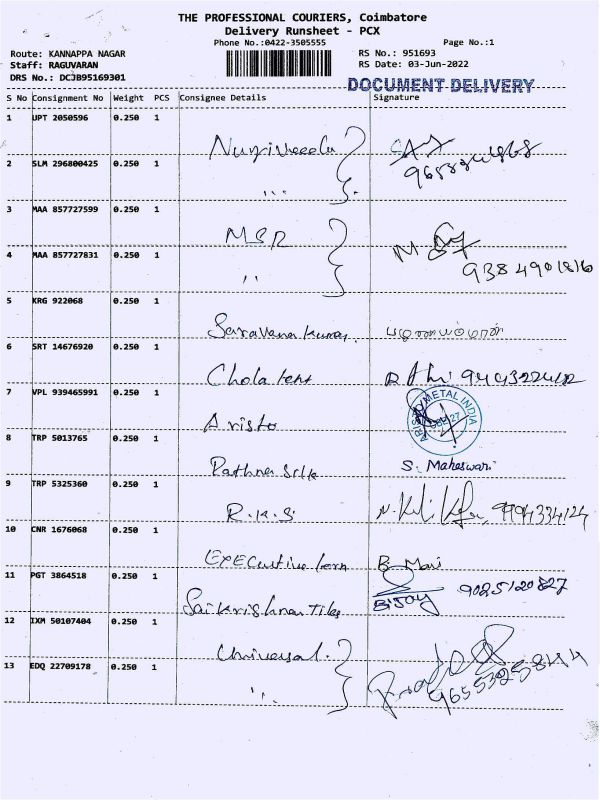 THE PROFESSIONAL COURIERS, Coimbatore
Delivery Runsheet - PCX
Phone No.:0422-3505555 Page No.:1
Route: KANNAPPA NAGAR RS No.: 951693
Staff: RAGUVARAN RS Date: 03-Jun-2022
DRS No.: DCJB95169301
DOCUMENT DELIVERY
S No Consignment No Weight PCS Consignee Details Signature
1 UPT 2050596 0.250 1
2 SLM 296800425 0.250 1
3 MAA 857727599 0.250 1
MSR
4 MAA 857727831 0.250 1
9384901816
5 KRG 922068 0.250 1
Saravana Kumar.
6 SRT 14676920 0.250 1
Chola text
7 VPL 939465991 0.250 1
Aristo
ARISTO METAL INDIA
8 TRP 5013765 0.250 1
Rathna Silk S. Maheswari
9 TRP 5325360 0.250 1
R.K.S 9994334124
10 CNR 1676068 0.250 1
Executive B. Mari
11 PGT 3864518 0.250 1
Saikrishna Tiles Bijoy 9025120827
12 IXM 50107404 0.250 1
Universal.
13 EDQ 22709178 0.250 1